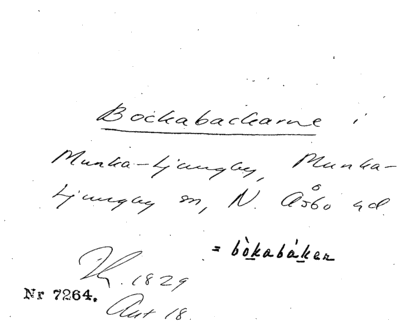 Bockabackarne i
Munka-Ljungby, Munka-
Ljungby sn, N. Åsbo hd.
= bòkabákan
1829
Nr 7264.
Akt 18.